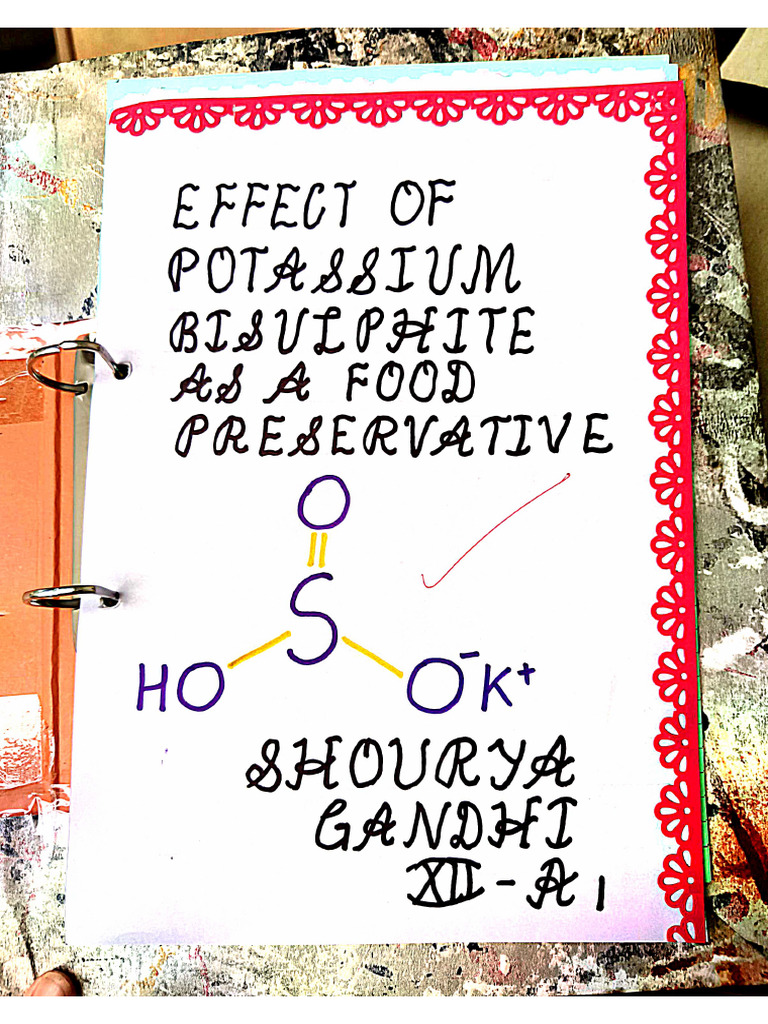 EFFECT OF
POTASSIUM
BISULPHITE
AS A FOOD
PRESERVATIVE
O
S
HO O⁻K⁺
SHOURYA
GANDHI
XII-A1